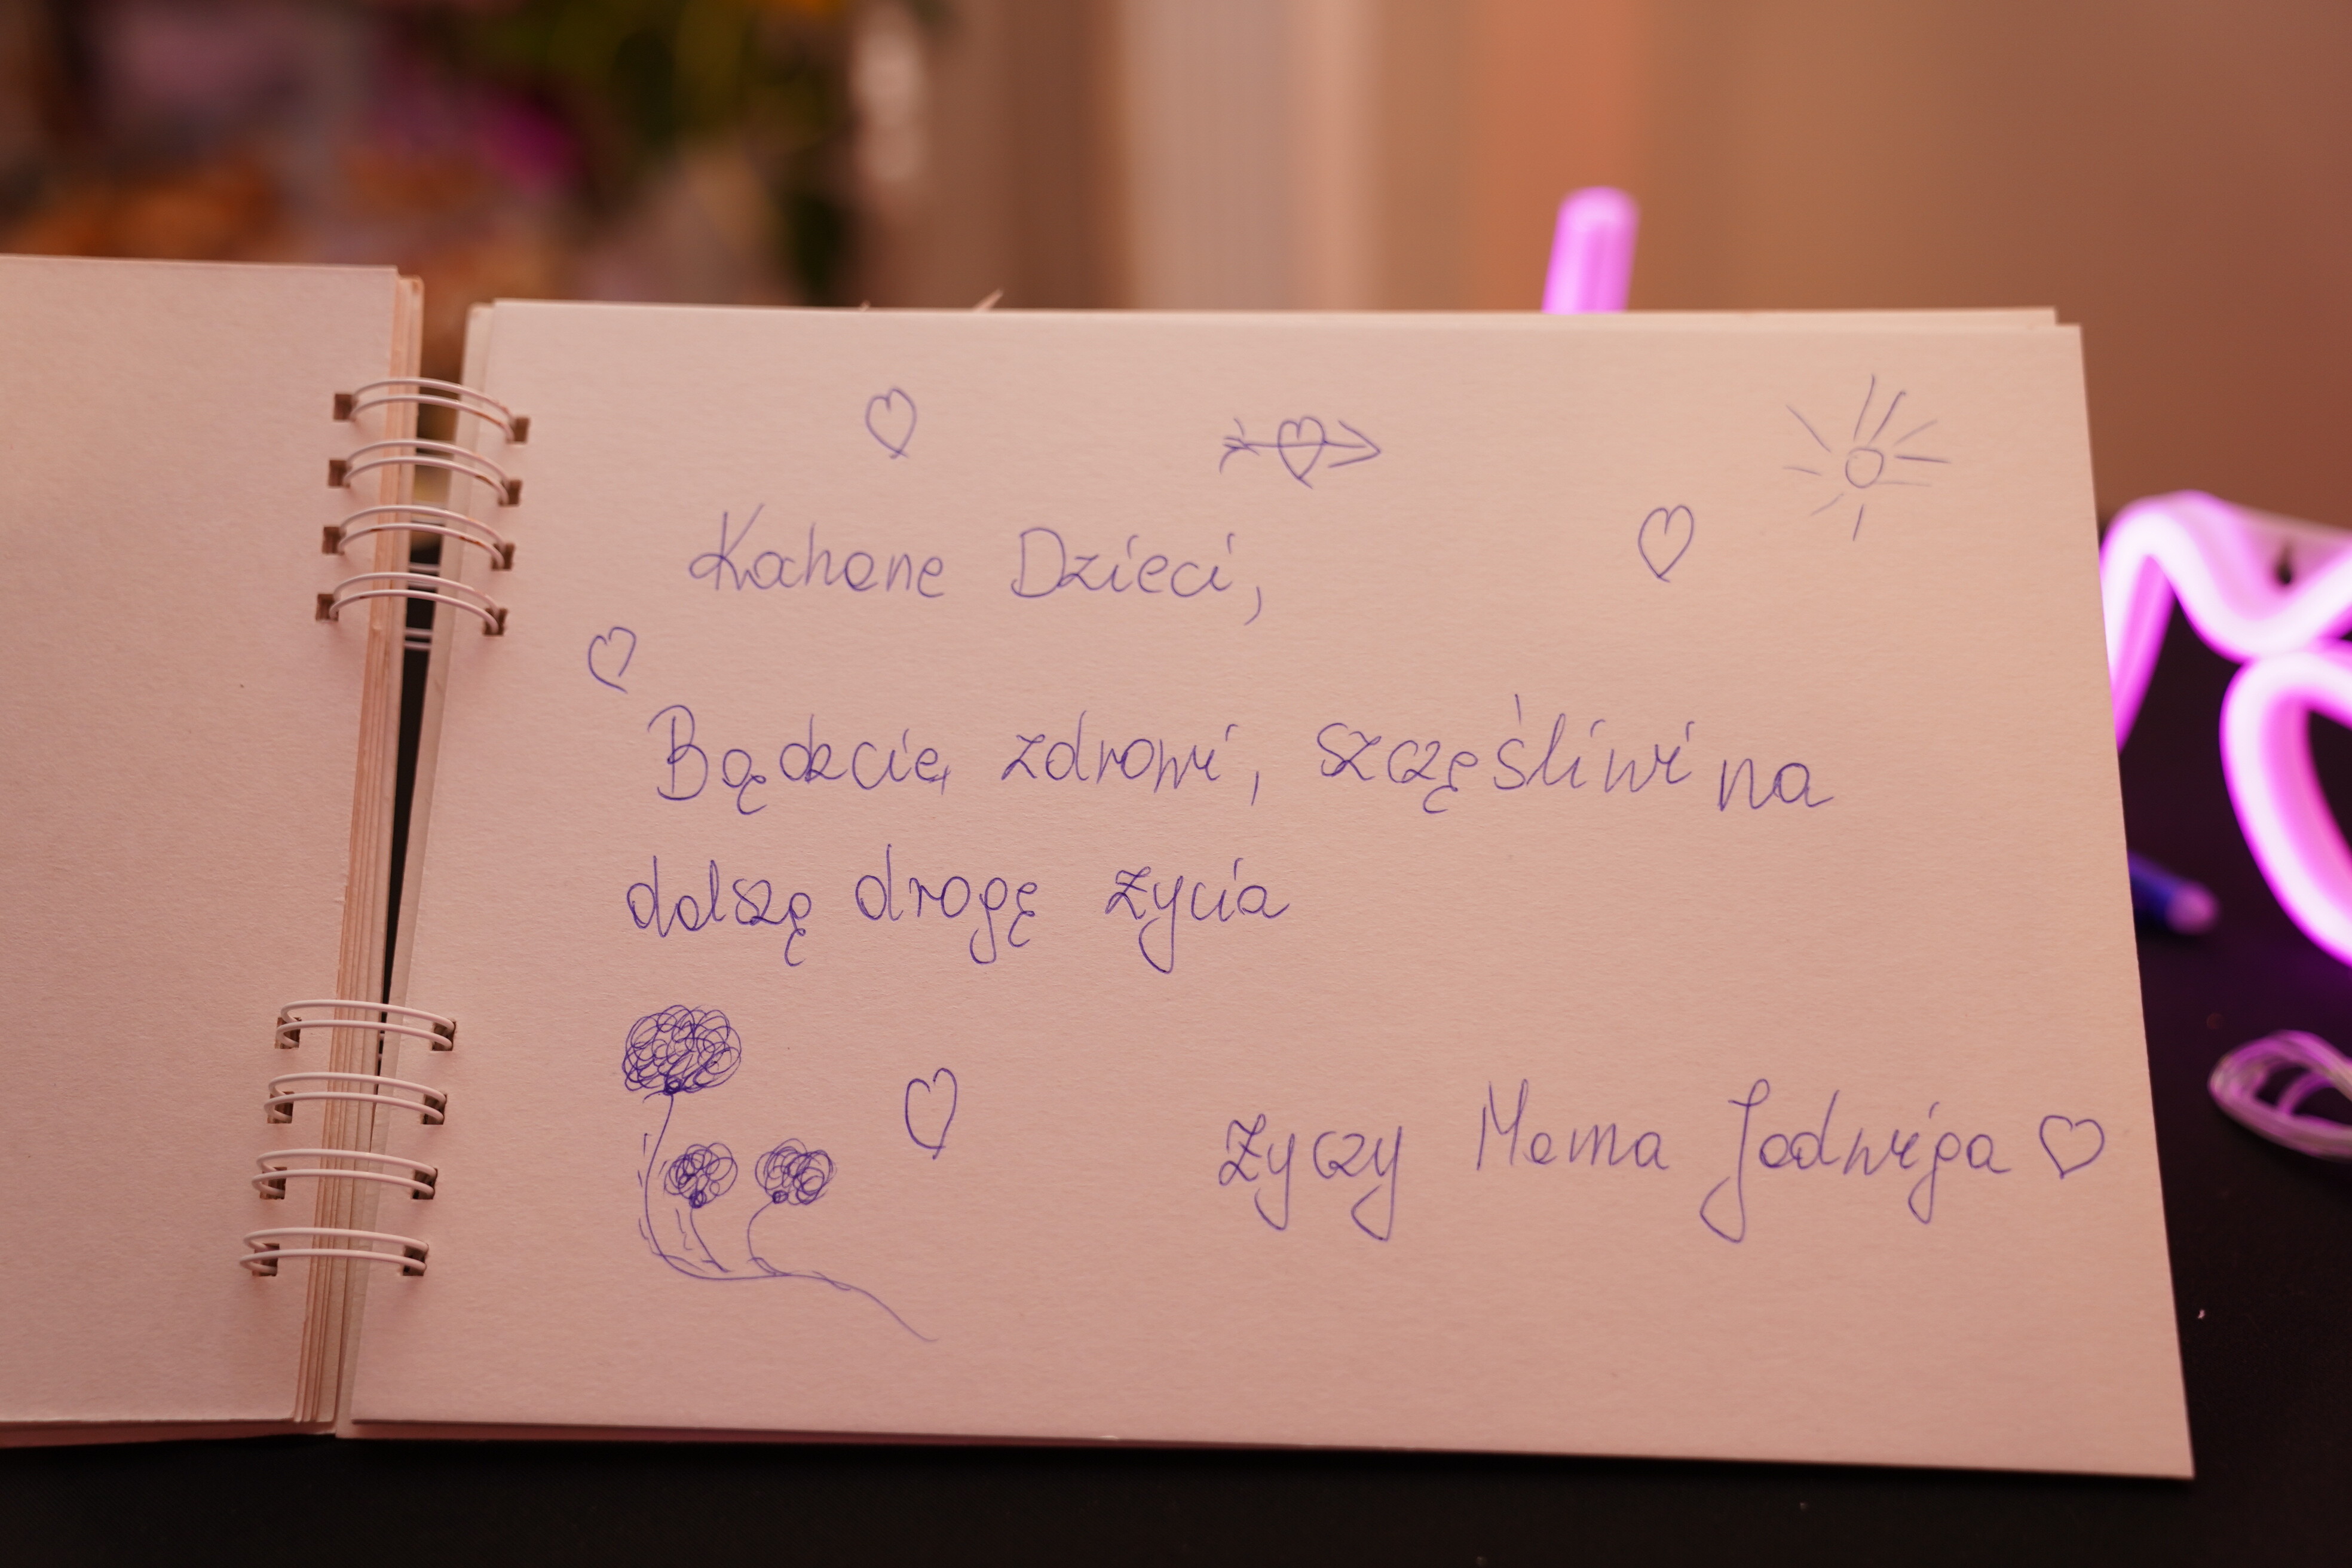 Kochane Dzieci,
Bądzcie, zdrowi, szczęśliwi na
dalszą drogę życia
życzy Mama Jadwiga